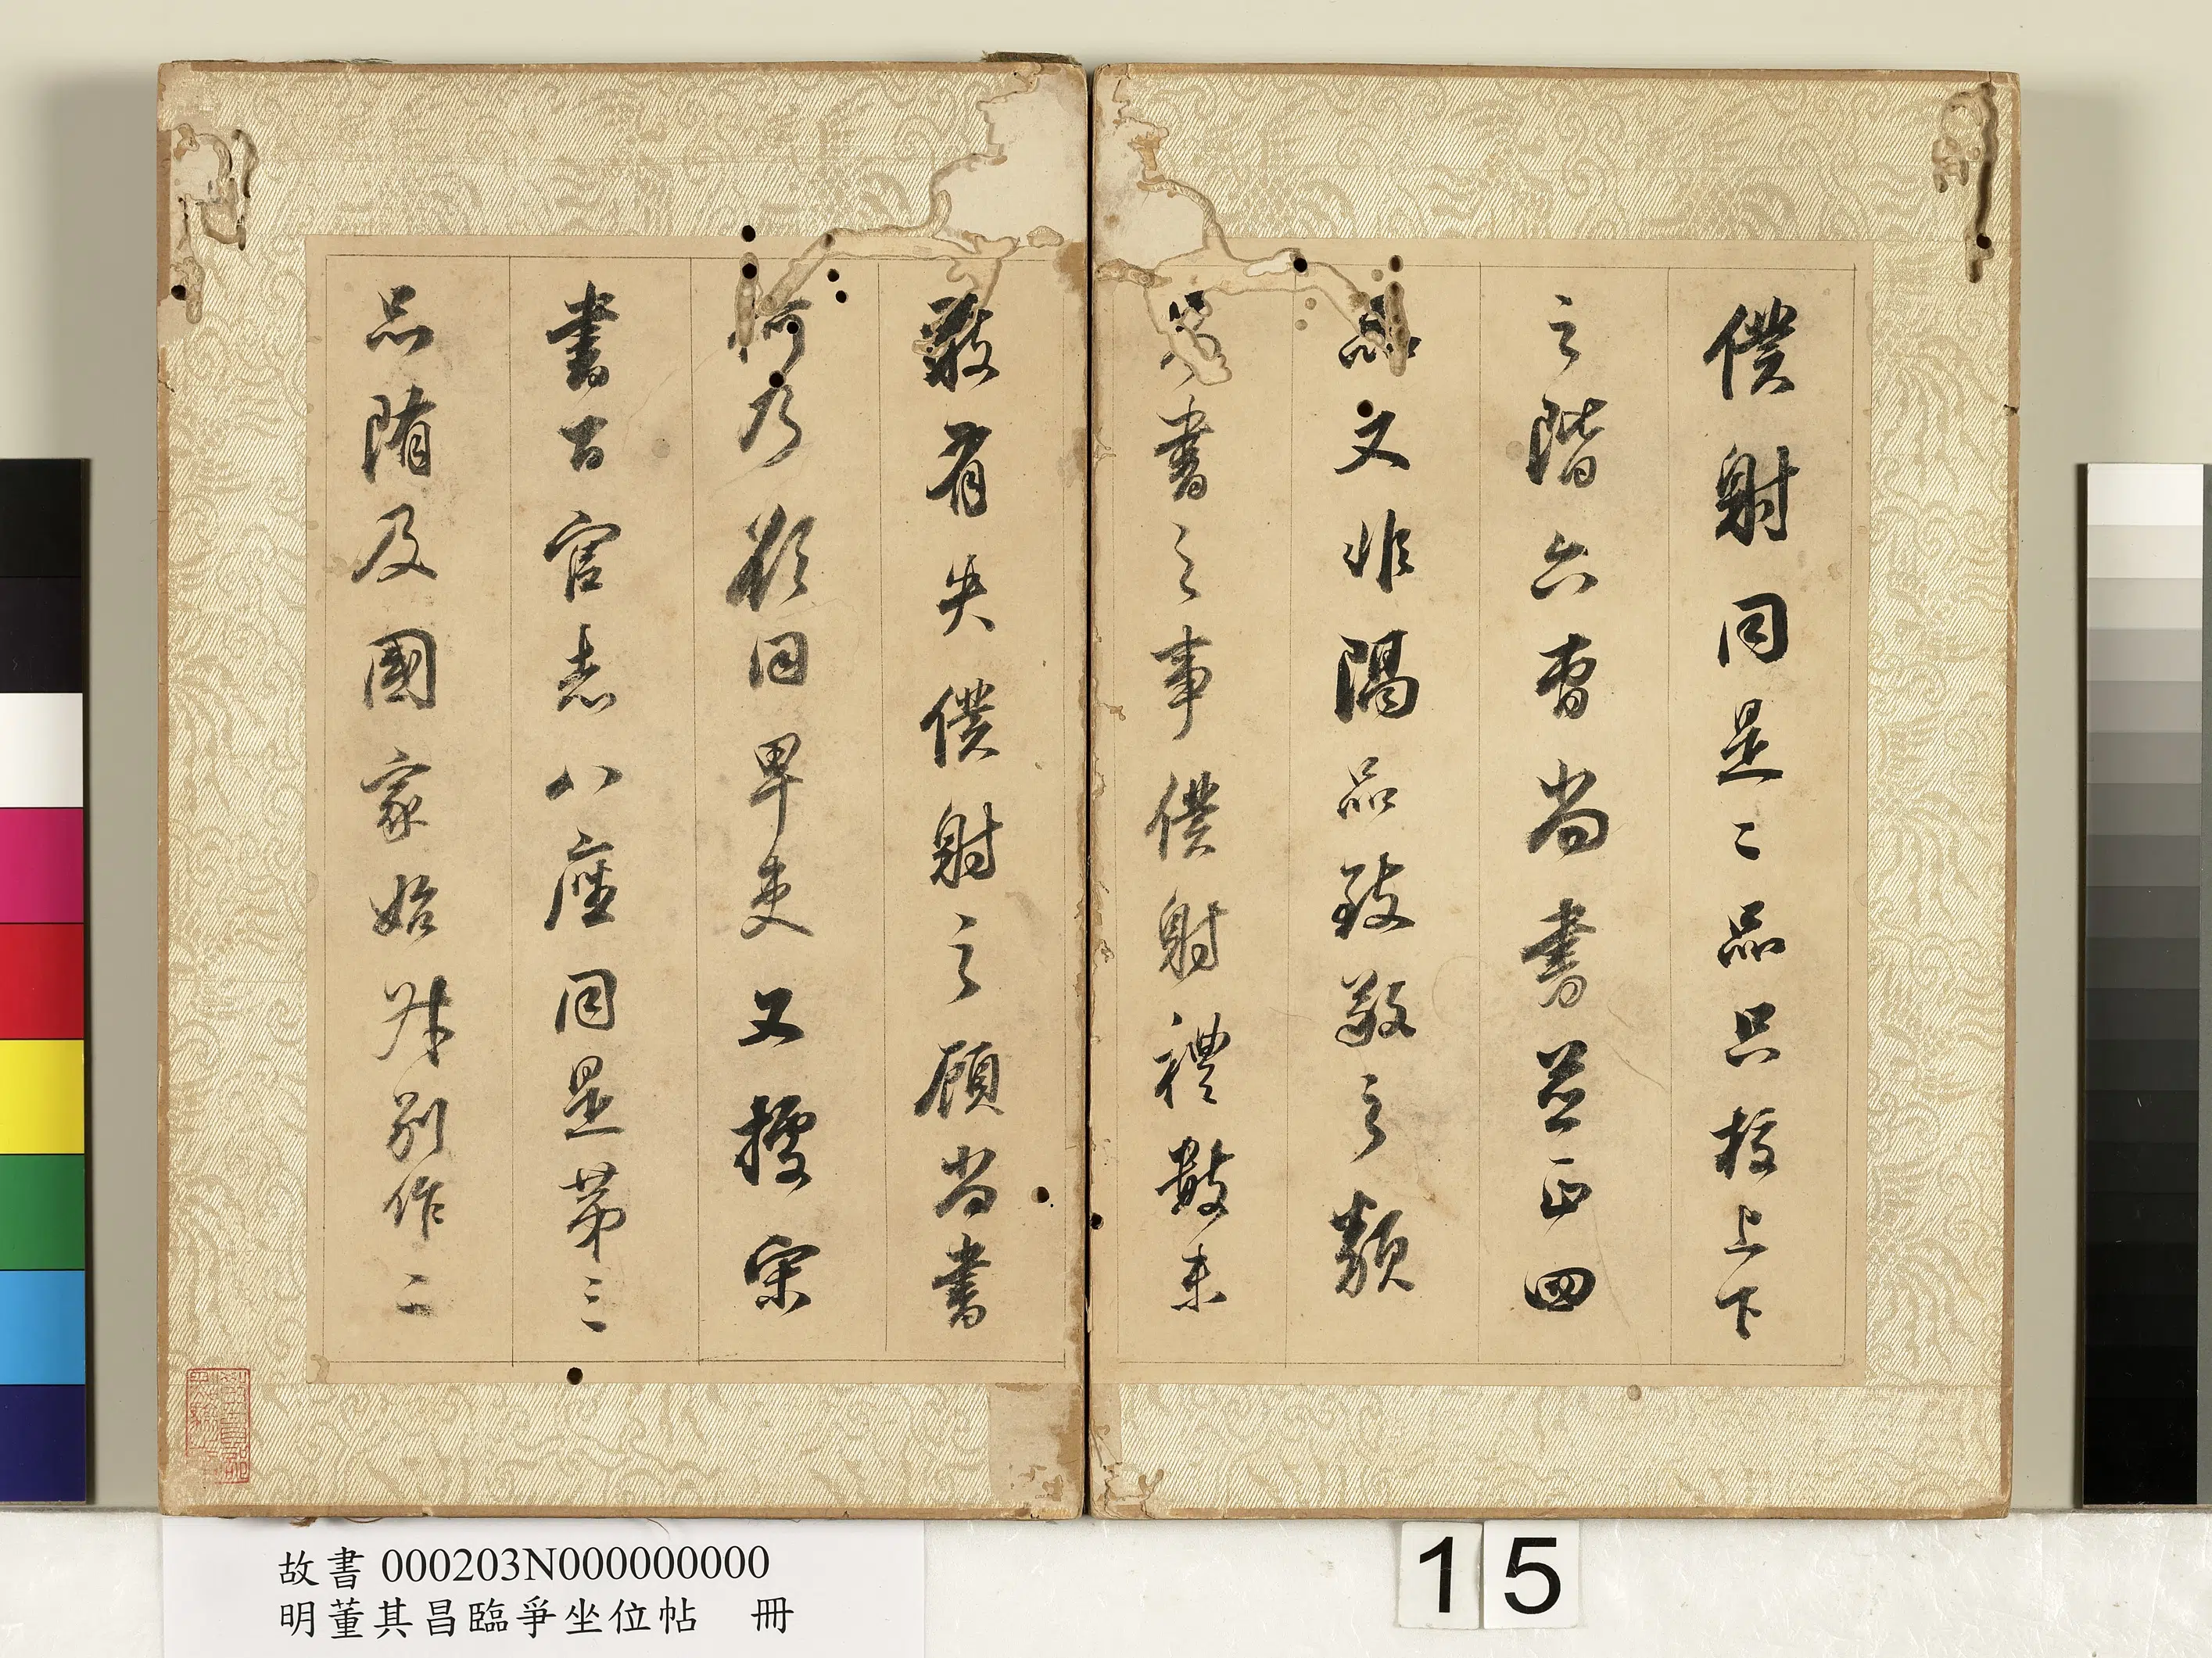 僕射同是二品只校上下
之階六曹尚書並正四
品又非隔品致敬之類
書之事僕射禮數未
敢有失僕射之顧尚書
何乃欲同卑吏又據宋
書百官志八座同是第三
品隋及國家始升別作二
故書 000203N000000000
明董其昌臨爭坐位帖 冊
15